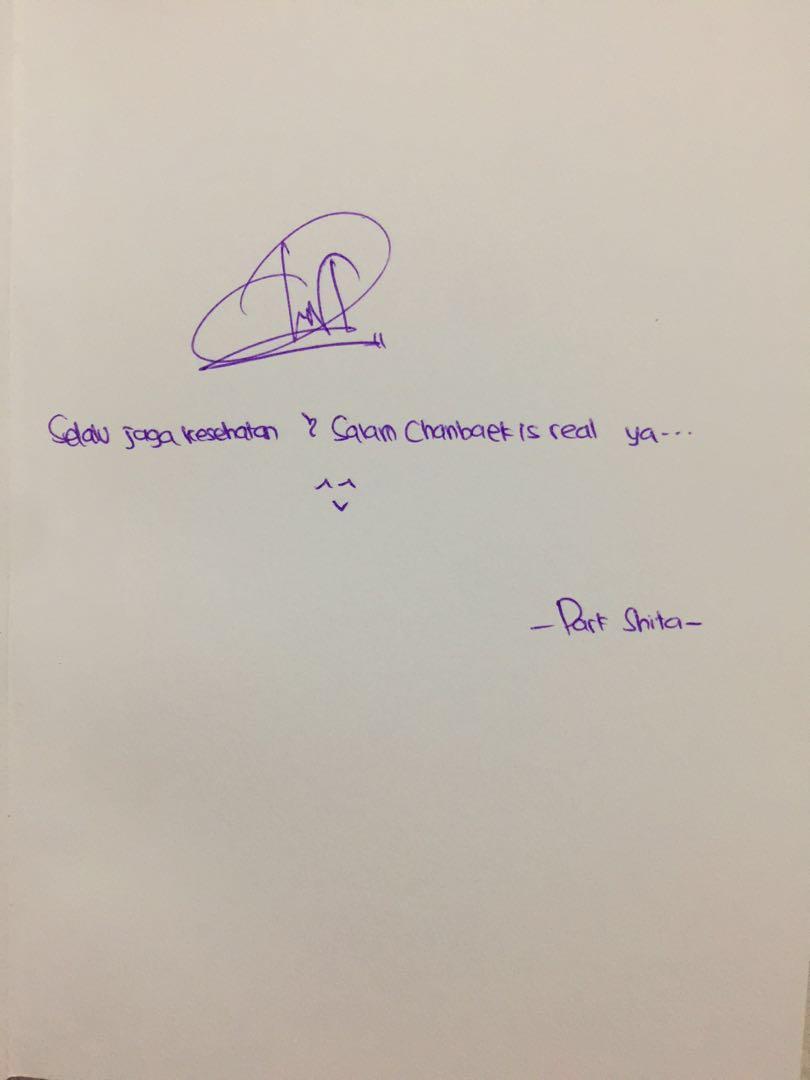 Selalu jaga kesehatan & Salam Chanbaek is real ya...
^^
-Park Shita-